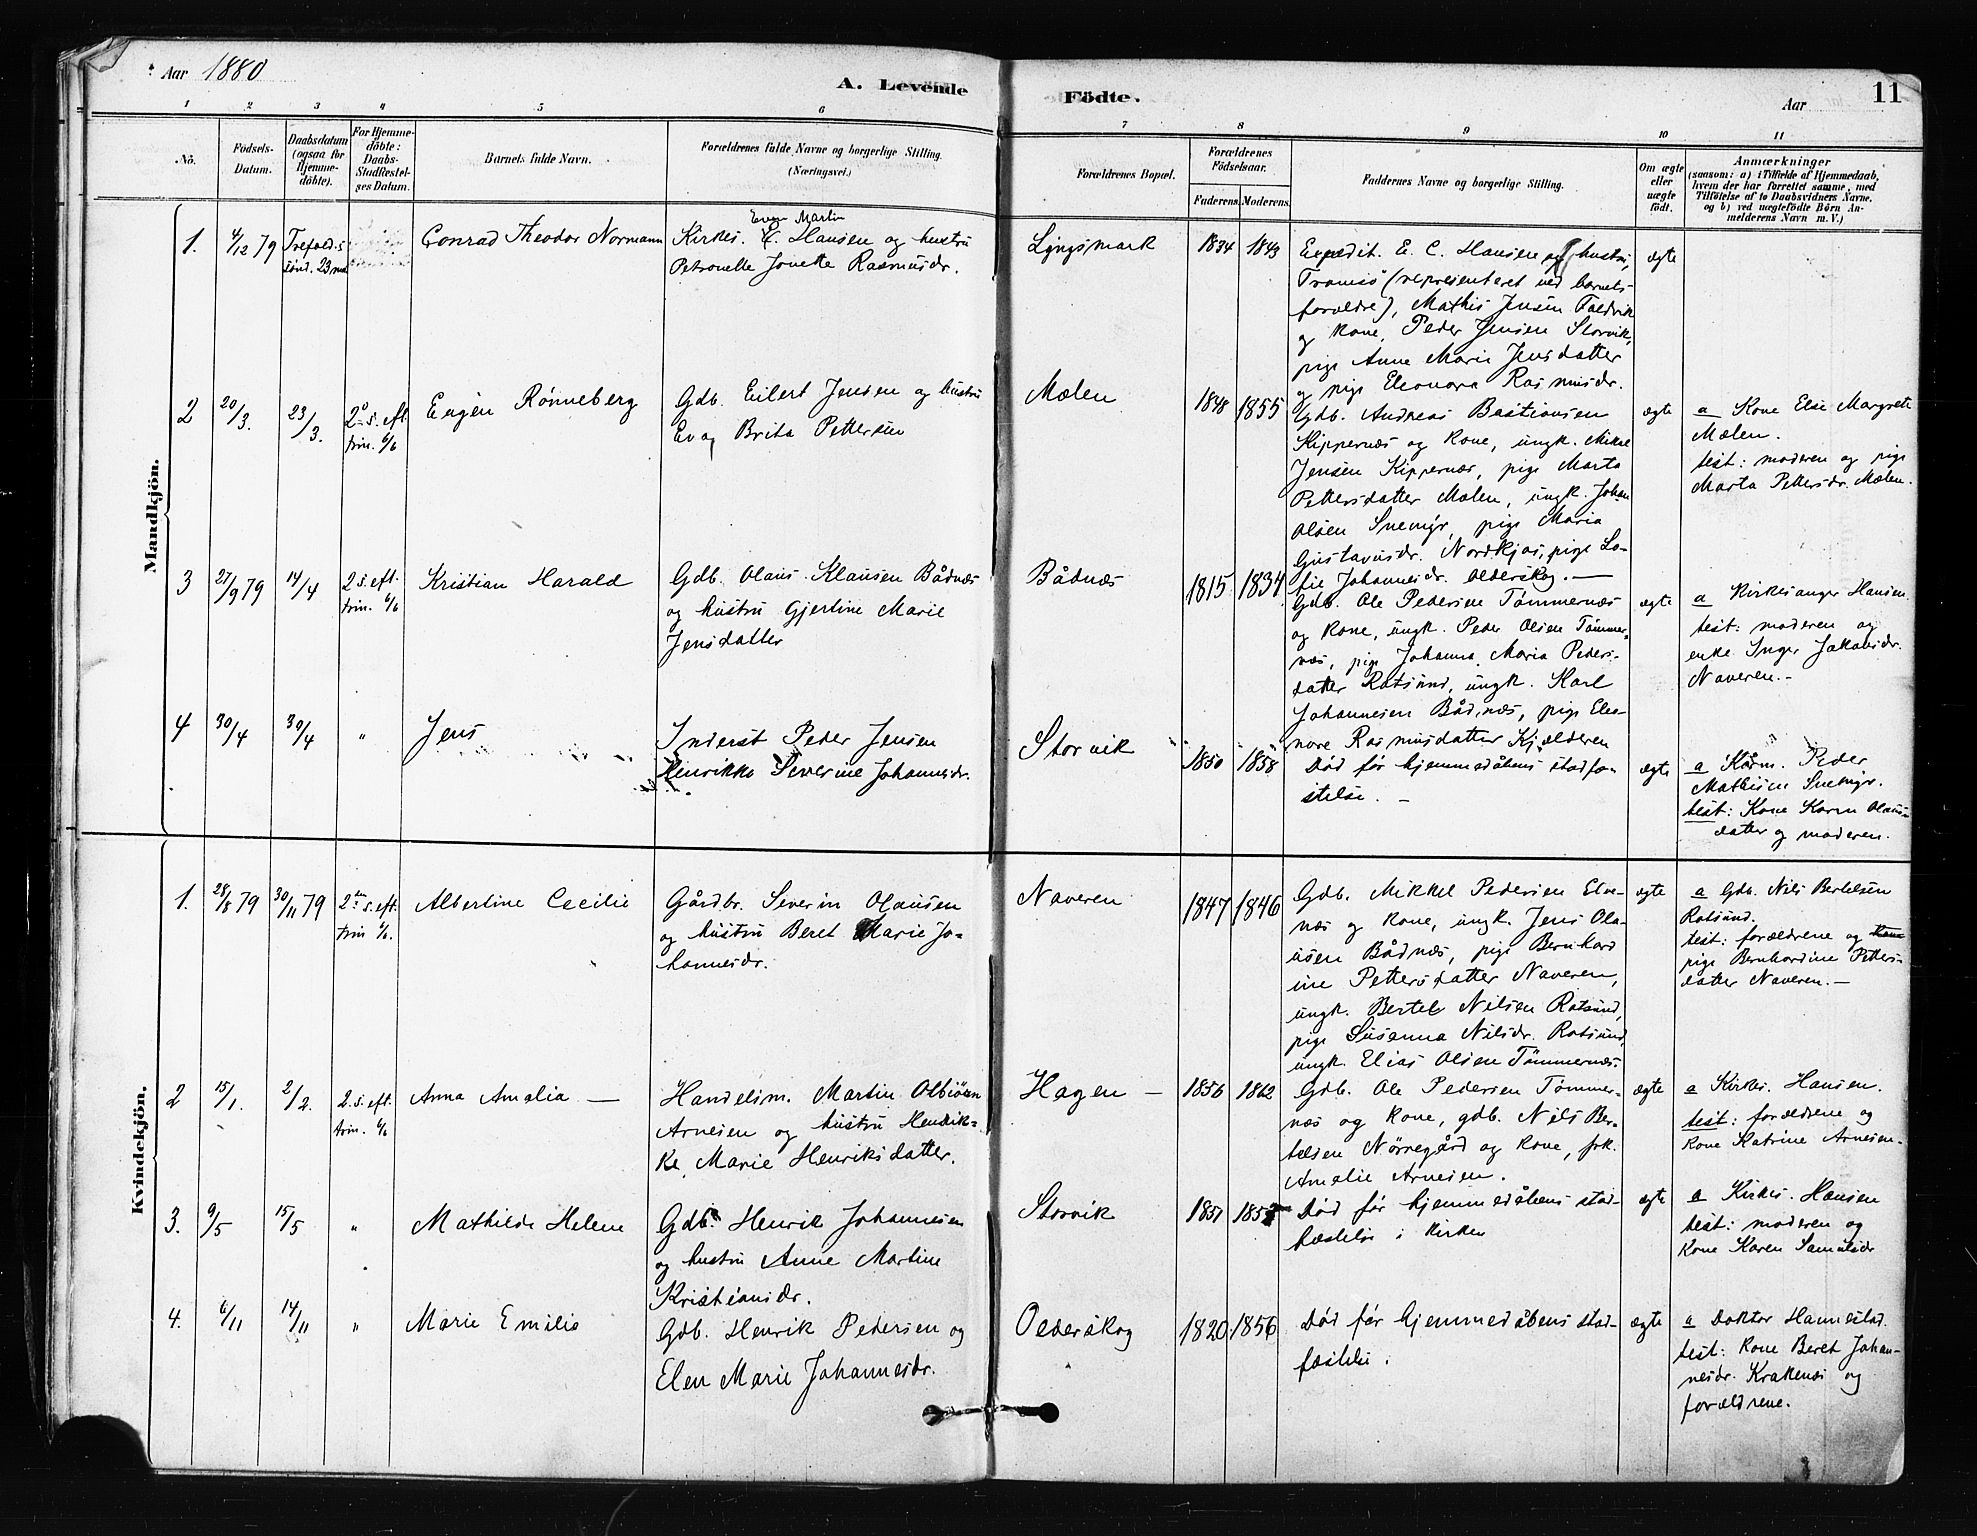 Aar 1880
A. Levende
Födte.
Aar
11
1 2 3 4 5 6 7 8 9 10 11
No.
Födsels-
Datum.
Daabsdatum
(ogsaa for
Hjemme-
döbte).
For Hjemme-
döbte:
Daabs-
Stadfæstel-
ses Datum.
Barnets fulde Navn.
Forældrenes fulde Navne og borgerlige Stilling.
(Næringsvei.)
Forældrenes Bopæl.
Forældrenes
Födselsaar.
Faderens.
Moderens.
Faddernes Navne og borgerlige Stilling.
Om ægte
eller
uægte
födt.
Anmærkninger
(saasom: a) i Tilfælde af Hjemmedaab,
hvem der har forrettet samme, med
Tilföielse af to Daabsvidners Navne,
og b) ved uægtefödte Börn An-
melderens Navn m. V.)
Mandkjön.
1.
4/12 79
Trefold.s
sönd. 23 mai
Conrad Theodor Normann
Even Martin
Kirkes. E. Hansen og hustru
Petronelle Jonette Rasmusdr.
Lyngsmark
1834
1843
Expedit. E. C. Hansen og hustru,
Tromsö (representeret ved barnets
forældre), Mathis Jensen Faldvik
og kone, Peder Jensen Storvik,
pige Anne Marie Jensdatter
og pige Eleonora Rasmusdr.
ægte
2
20/3.
23/3.
2. s. eft.
trin. 6/6
Eugen Rönneberg
Gdb. Eilert Jensen og hustru
Eva Brita Pettersen
Mælen
1848
1855
Gdb. Andreas Bastiansen
Kippernæs og kone, ungk. Mikal
Jensen Kippernæs, pige Marta
Pettersdatter Mælen, ungk. Johan
Olsen Snemyr, pige Maria
Gustavusdr. Nordkjos, pige Lo-
fie Johannesdr. Olderskog. —
ægte
a Kone Else Margrete
Mælen.
test: moderen og pige
Marta Pettersdr. Mælen.
3
27/9 79
14/4
2. s. eft.
trin. 6/6
Kristian Harald
Gdb. Olaus Klausen Bådnæs
og hustru Gjertine Marie
Jensdatter
Bådnæs
1815
1834
Gdb. Ole Pedersen Tömmernæs
og kone, ungk. Peder Olsen Tömmer-
næs, pige Johanna Maria Peders-
datter Rotsund, ungk. Karl
Johannesen Bådnæs, pige Eleo-
nore Rasmusdatter Kjælderen
ægte
a Kirkesanger Hansen.
test: moderen og
enke Inger Jakobsdr.
Naveren. -
4
30/4
30/4
"
Jens
Inderst Peder Jensen
Henrikke Severine Johannesdr.
Storvik
1850
1858
Död för hjemmedåbens stadfæ-
stelse. -
ægte
a Kårm. Peder
Mathisen Snemyr.
test: Kone Karen Olaus-
datter og moderen.
Kvindekjön.
1.
28/8 79
30/11 79
2. s. eft.
trin 6/6.
Albertine Cecilie
Gårdbr. Severin Olausen
og hustru Beret Marie Jo-
hannesdr.
Naveren
1847
1846
Gdb. Mikkel Pedersen Elve-
næs og kone, ungk. Jens Ola-
usen Bådnæs, pige Bernhard
ine Pettersdatter Naveren,
ungk. Bertel Nilsen Rotsund,
pige Susanna Nilsdr. Rotsund,
ungk. Elias Olsen Tömmernæs.
ægte
a Gdb. Nils Bertelsen
Rotsund.
test: forældrene og
pige Bernhardine Petters-
datter Naveren. —
2
15/1.
2/2.
2. s. eft.
trin. 6/6
Anna Amalia —
Handelsm. Martin Olbiösen
Arnesen og hustru Hendrik-
ke Marie Henriksdatter.
Hagen —
1856
1862
Gdb. Ole Pedersen Tömmer-
næs og kone, gdb. Nils Ber-
telsen Nörregård og kone, frk.
Amalie Arnesen.
ægte
a Kirkes. Hansen.
test: forældrene og
kone Katrine Arnesen.
3.
9/5
15/5
"
Mathilde Helene
Gdb. Henrik Johannesen
og hustru Anne Martine
Kristiansdr.
Storvik
1851
Död för hjemmedåbens stad-
fæstelse i kirken
ægte
a Kirkes. Hansen
test: moderen og
kone Karen Samulsdr
4.
6/11
14/11
"
Marie Emilie
Gdb. Henrik Pedersen og
Elen Marie Johannesdr.
Oederskog
1820
1856
Död för hjemmedåbens stad-
fæstelse.
ægte
a Doktor Hannestad.
test: kone Beret Johan-
nesdr. Krakenæs og
forældrene.